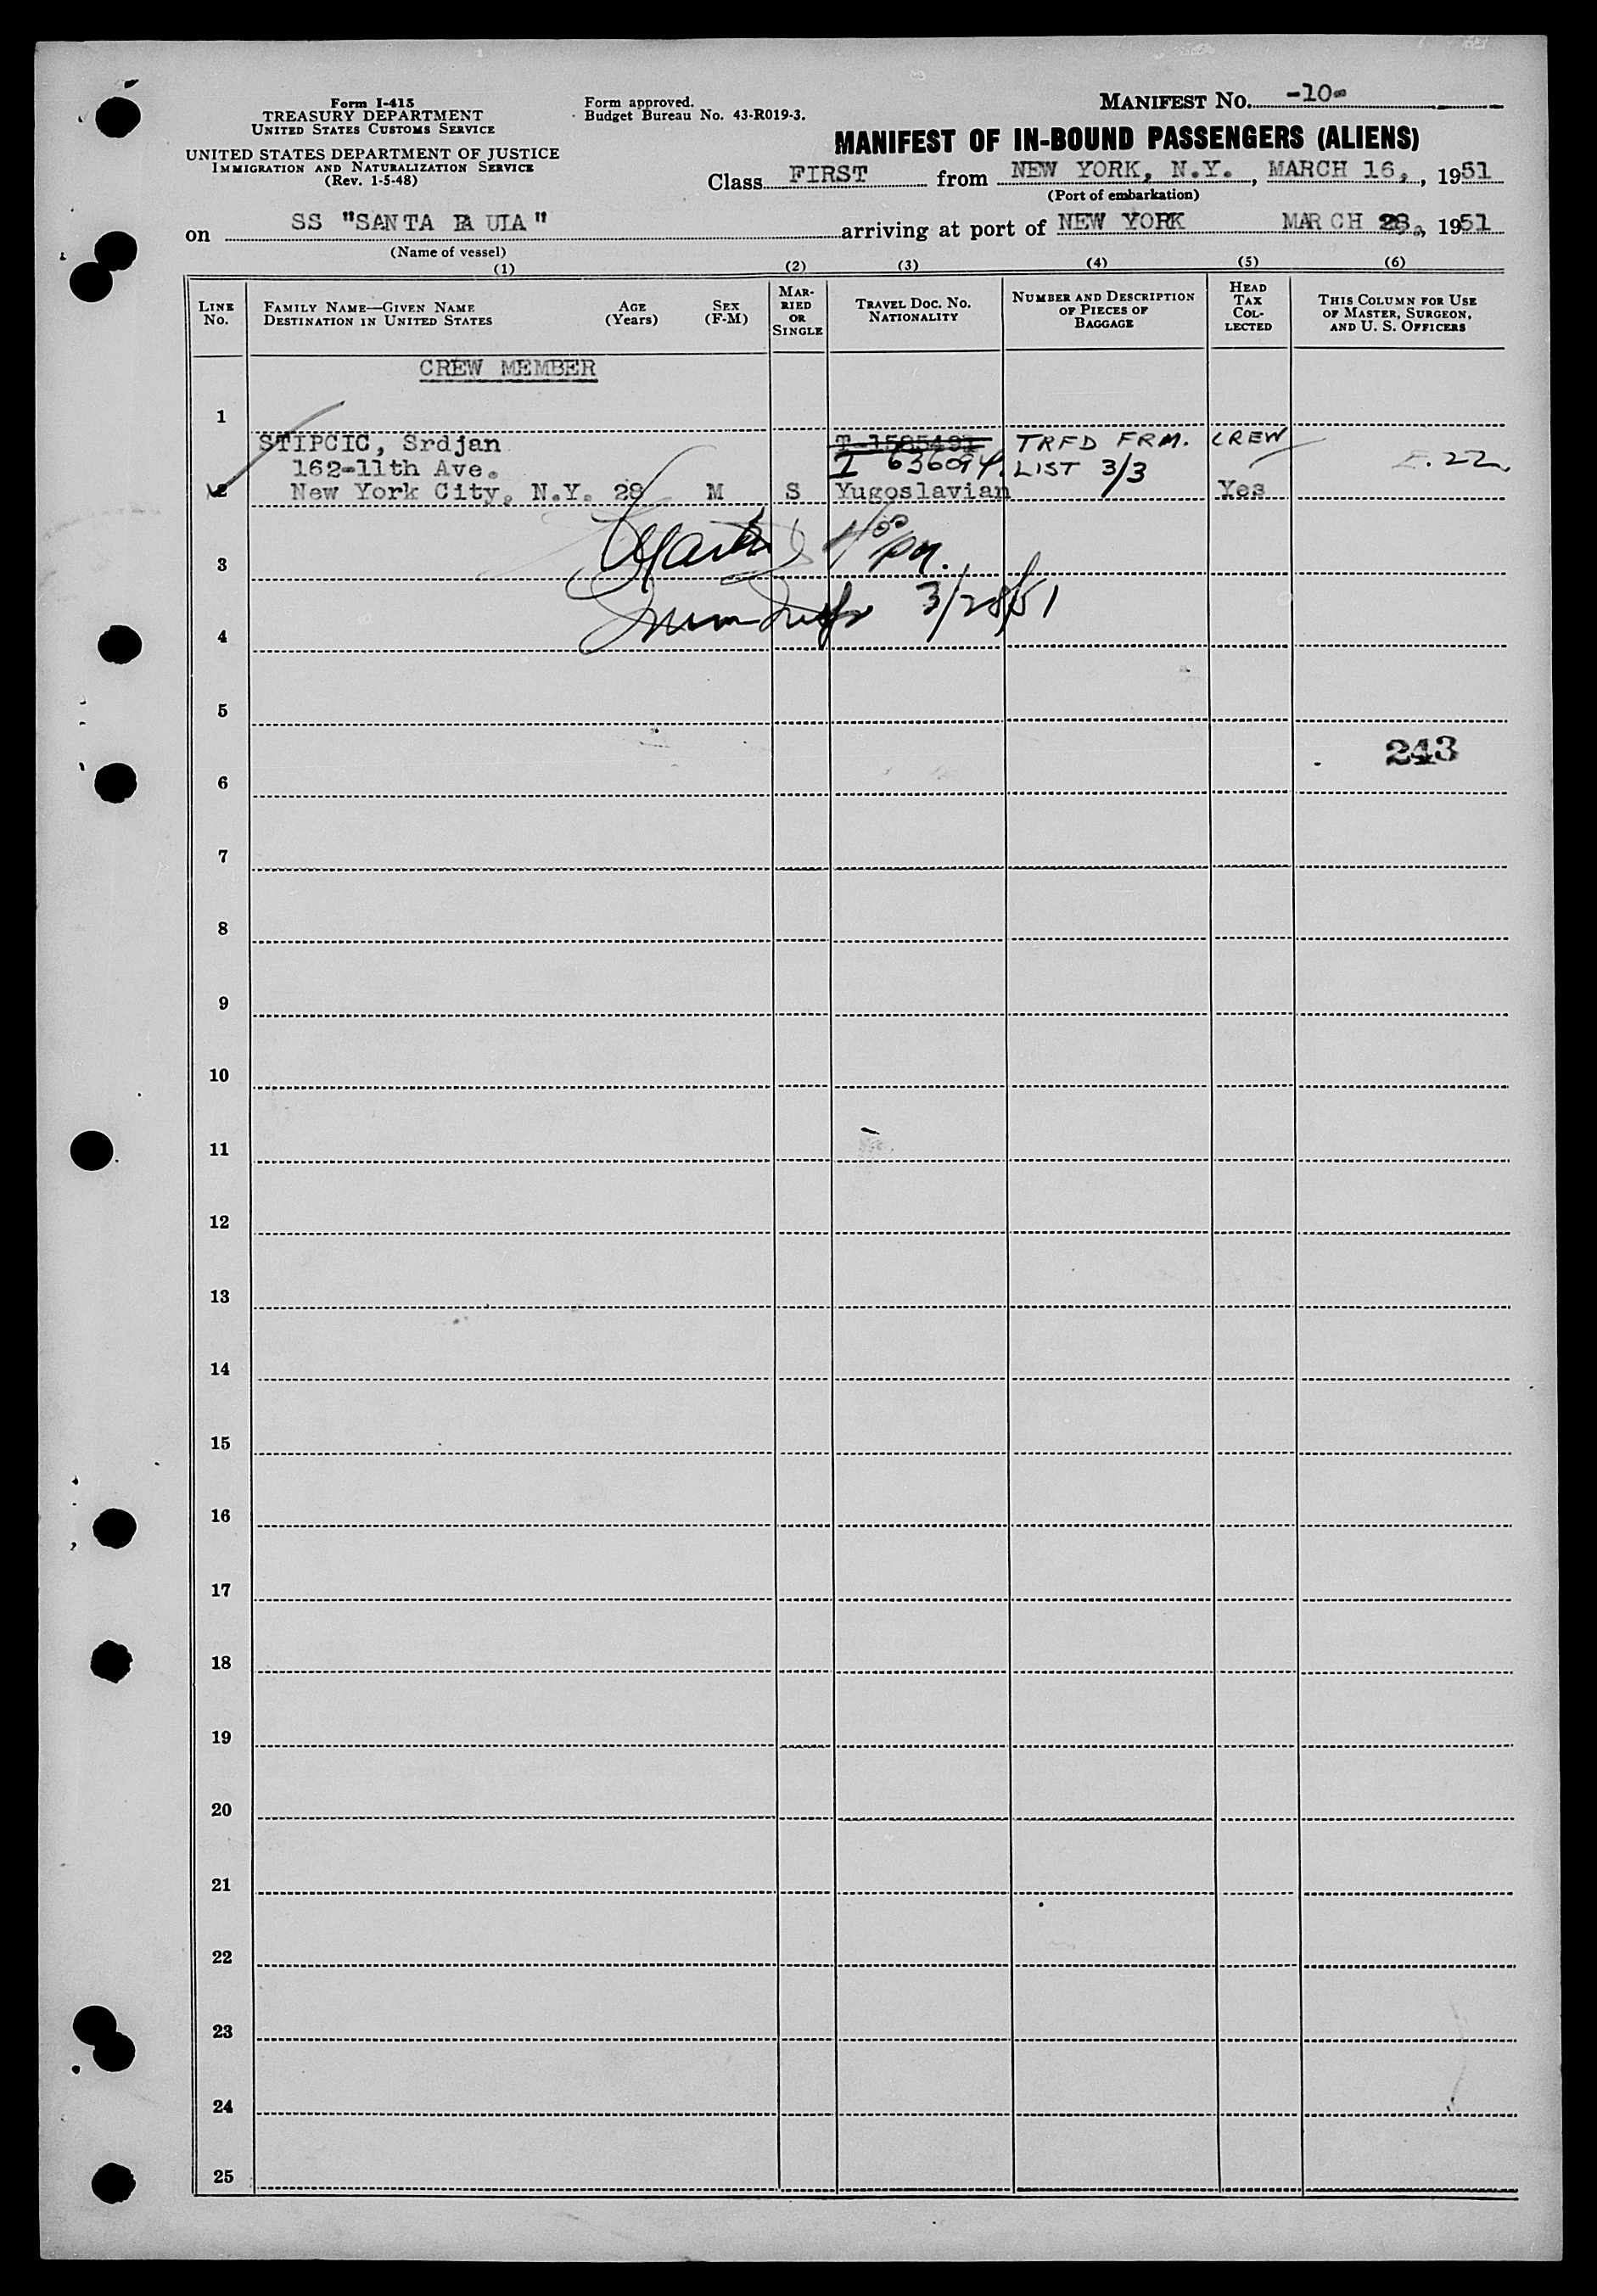 Form I-415
TREASURY DEPARTMENT
UNITED STATES CUSTOMS SERVICE
UNITED STATES DEPARTMENT OF JUSTICE
IMMIGRATION AND NATURALIZATION SERVICE
(Rev. 1-5-48)
Form approved.
Budget Bureau No. 43-R019-3.
MANIFEST NO. -10-
MANIFEST OF IN-BOUND PASSENGERS (ALIENS)
Class FIRST from NEW YORK, N.Y., MARCH 16, 1951
(Port of embarkation)
on SS "SANTA PAULA" arriving at port of NEW YORK MARCH 28, 1951
(Name of vessel)
(1) (2) (3) (4) (5) (6)
LINE NO.
FAMILY NAME—GIVEN NAME
DESTINATION IN UNITED STATES
AGE (Years)
SEX (F-M)
MARRIED OR SINGLE
TRAVEL DOC. NO. NATIONALITY
NUMBER AND DESCRIPTION OF PIECES OF BAGGAGE
HEAD TAX COLLECTED
THIS COLUMN FOR USE OF MASTER, SURGEON, AND U. S. OFFICERS
CREW MEMBER
1
STIPCIC, Srdjan T-1585491 TRFD FRM. CREW
162-11th Ave. I 636094. LIST 3/3
2 New York City, N.Y. 28 M S Yugoslavian Yes
3
pm.
4
3/28/51
5
243
6
7
8
9
10
11
12
13
14
15
16
17
18
19
20
21
22
23
24
25